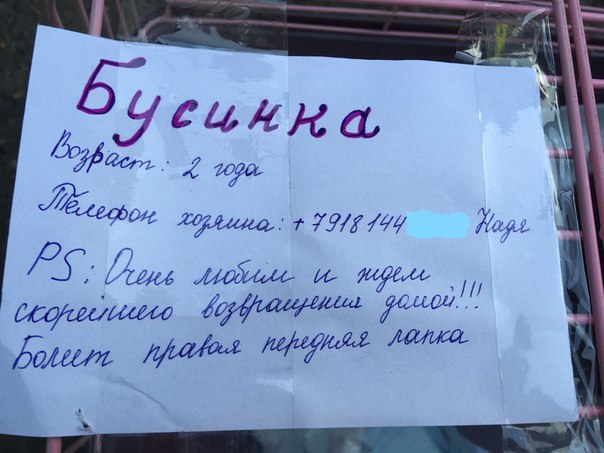 Бусинка
Возраст: 2 года
Телефон хозяина: +7918144 Надя
PS: Очень любим и ждем
скорейшего возвращения домой!!!
Болит правая передняя лапка